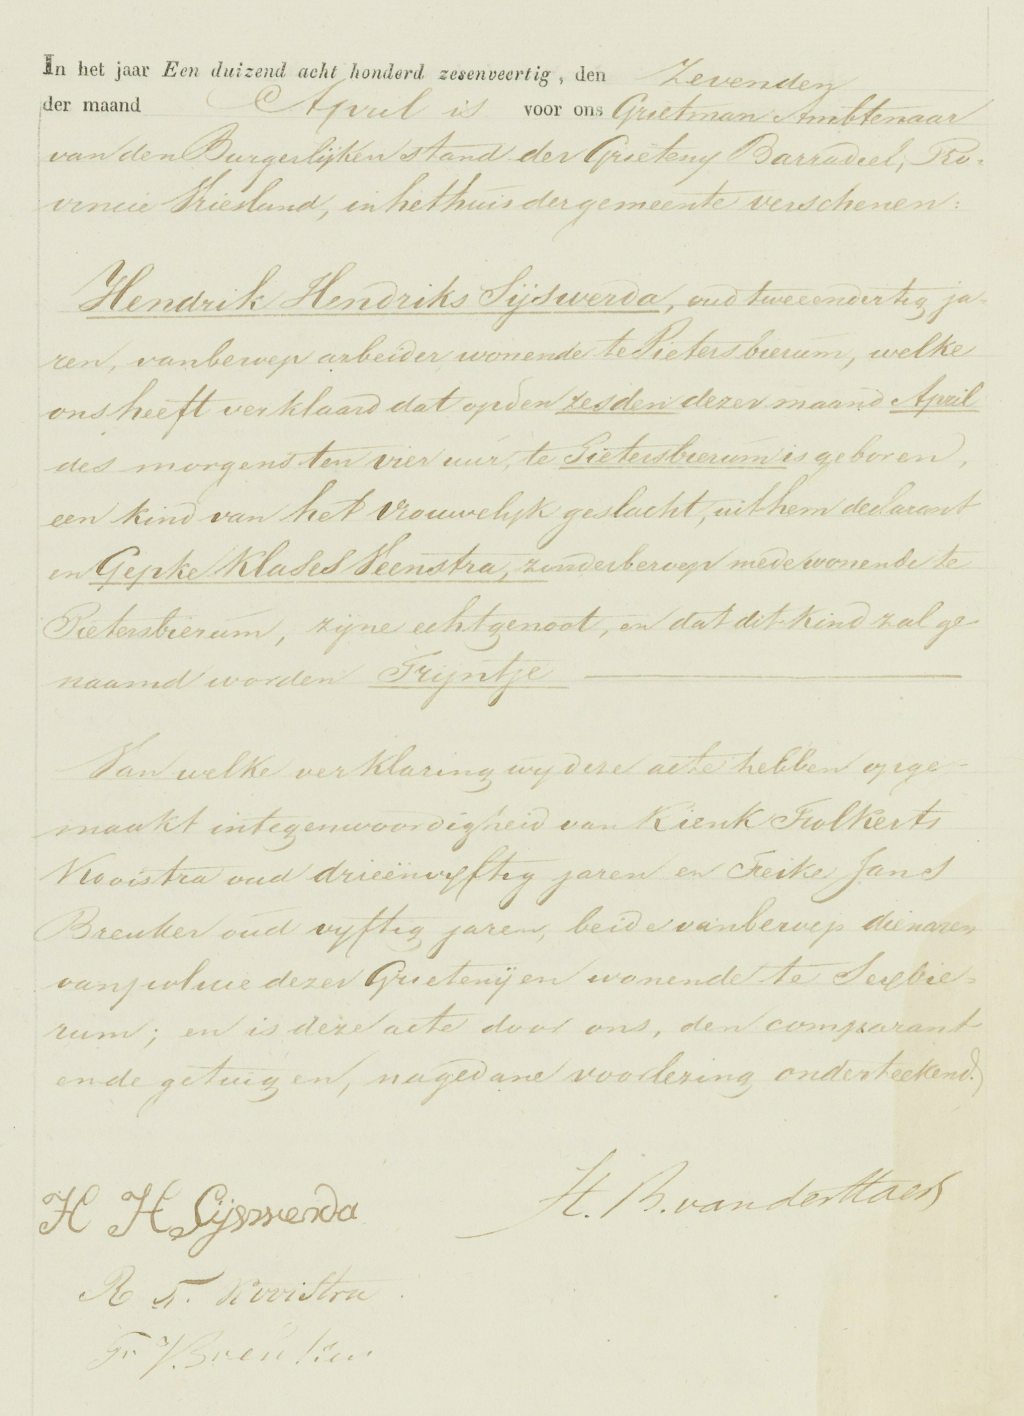 In het jaar Een duizend acht honderd zesenveertig, den Zevenden
der maand April is voor ons Grietman Ambtenaar
van den Burgerlijken stand der Grieteny Barradeel, Pro-
vincie Vriesland, in het huis der gemeente verschenen:
Hendrik Hendriks Sijswerda, oud tweeendertig ja-
ren, van beroep arbeider wonende te Pietersbierum, welke
ons heeft verklaard dat op den zesden dezer maand April
des morgens ten vier uur, te Pietersbierum is geboren,
een kind van het vrouwelyk geslacht, uit hem declarant
en Gepke Klases Veenstra, zonder beroep mede wonende te
Pietersbierum, zyne echtgenoot, en dat dit kind zal ge-
naamd worden Tryntje
Van welke verklaring wy deze acte hebben opge-
maakt in tegenwoordigheid van Rienk Folkerts
Kooistra oud drieënvyftig jaren en Freike Jans
Breuker oud vyftig jaren, beide van beroep dienaren
van policie dezer Grietenij en wonende te Sexbie-
rum; en is deze acte door ons, den comparant
en de getuigen, na gedane voorlezing onderteekend.
H H Sijswerda
H. B. van der Haer
R F. Kooistra
Fr J. Breuker